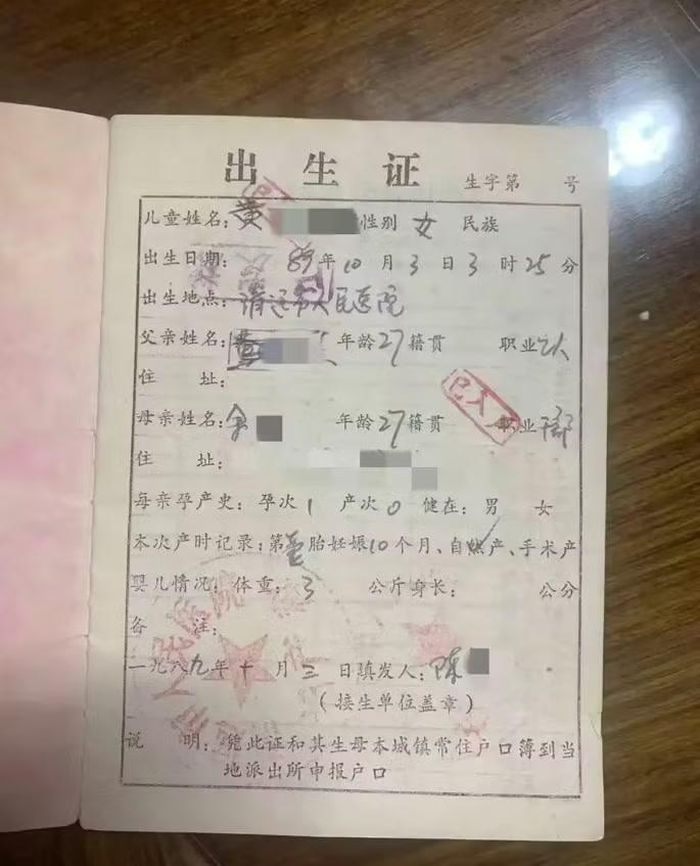 出生证
生字第 号
儿童姓名：黄 性别 女 民族
出生日期： 89年10月3日3时25分
出生地点：清远市人民医院
父亲姓名： 年龄27籍贯 职业工人
住 址：
已入户
母亲姓名：余 年龄27籍贯 职业干部
住 址：
母亲孕产史：孕次1 产次0 健在：男 女
本次产时记录：第壹胎妊娠10个月、自然产、手术产
婴儿情况：体重：3 公斤身长： 公分
备 注：
一九八九年十月三日填发人：陈
（接生单位盖章）
说 明：凭此证和其生母本城镇常住户口簿到当
地派出所申报户口